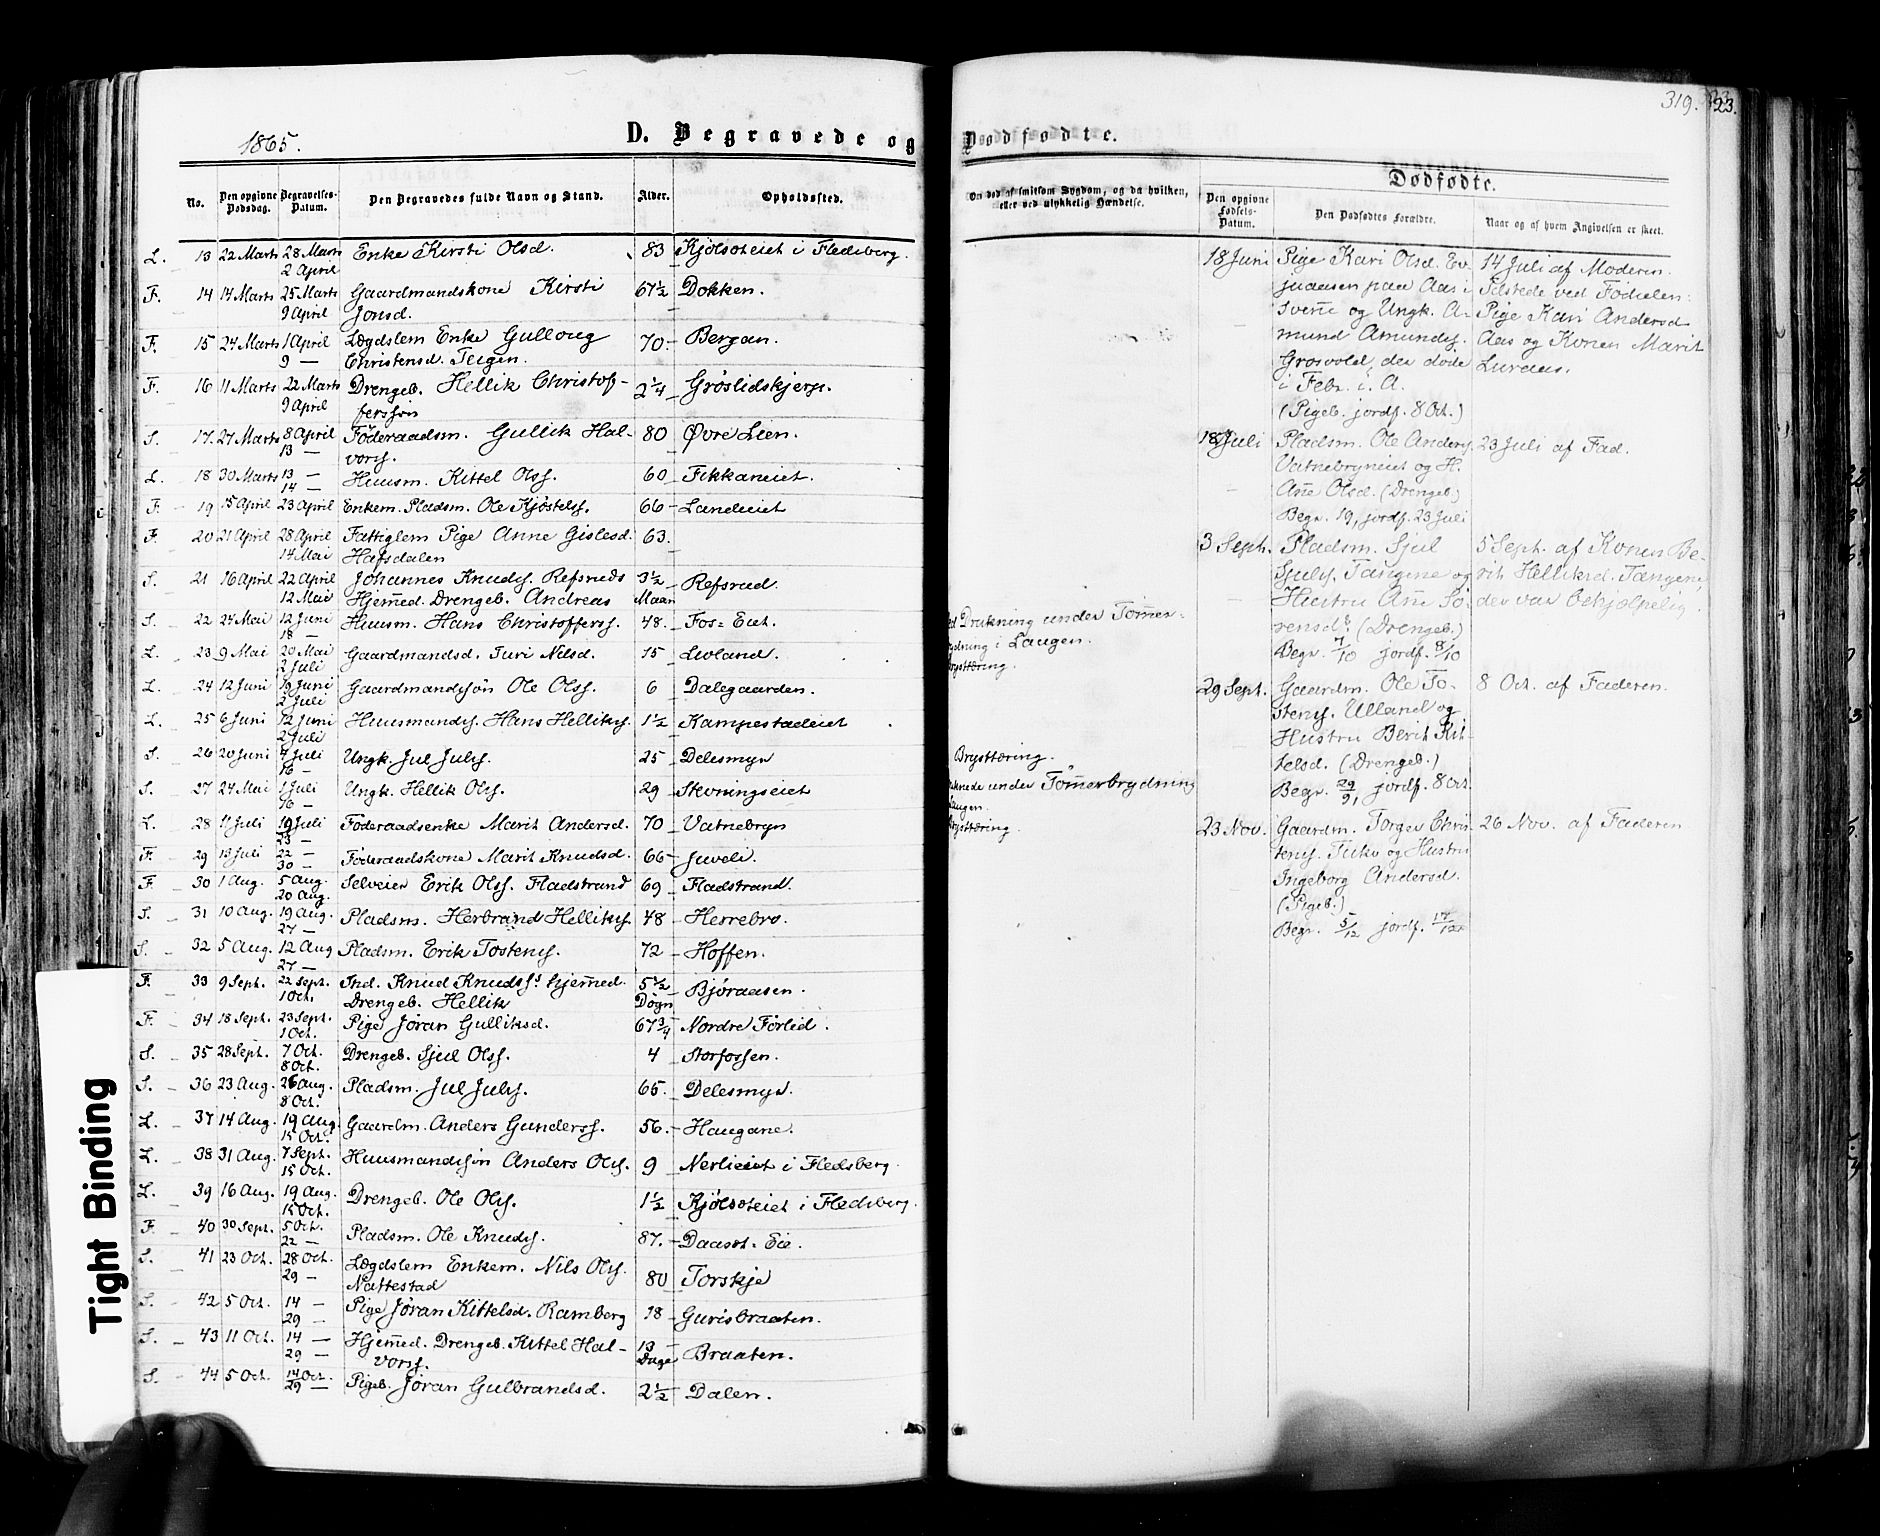 1865.
D. Begravede og
No.
Den opgivne Dødsdag.
Begravelses-Datum.
Den Begravedes fulde Navn og Stand.
Alder.
Opholdssted.
L. 13 22 Marts 28 Marts Enke Kirsti Olsd. 83 Kjølsoteiet i Fledsberg.
2 April
F. 14 14 Marts 25 Marts Gaardmandskone Kirsti 67½ Dokken.
9 April Jonsd.
F. 15 24 Marts 1 April Lægdslem Enke Gulloug 70 Bergan.
9 — Christensd. Teigen.
F. 16 11 Marts 22 Marts Drengeb. Hellik Christof- 2¼ Grøslidskjerp.
9 April fersøn
S. 17. 27 Marts 8 April Føderaadsm. Gullik Hal- 80 Øvre Lien.
13 — vorss.
L. 18 30 Marts 13 — Huusm. Kittel Olss. 60 Fikkaneiet.
14 —
F. 19 15 April 23 April Enkem. Pladsm. Ole Kjøstelss. 66 Landeiet
F. 20 21 April 28 April Fattiglem Pige Anne Gislesd. 63.
14 Mai Hafsdalen
S. 21 16 April 22 April Johannes Knudss. Refsruds 3½ Refsrud.
12 Mai Hjemmed. Drengeb. Andreas Maan
S. 22 24 Mai 12 Juni Huusm. Hans Christofferss. 48. Fos-Eiet.
18 —
L. 23 9 Mai 20 Mai Gaardmandsd. Turi Nilsd. 15 Livland.
2 Juli
L. 24 12 Juni 19 Juni Gaardmandssøn Ole Olss. 6 Dalegaarden.
2 Juli
L. 25 6 Juni 12 Juni Huusmandss. Hans Helliks. 1½ Kampestadeiet
2 Juli
S. 26 20 Juni 7 Juli Ungk. Jul Julss. 25 Delesmyr
16 —
S. 27 24 Mai 1 Juli Ungk. Hellik Olss. 29 Stevningseiet
16 —
L. 28 11 Juli 19 Juli Føderaadsenke Marit Andersd. 70 Vatnebryn
23 —
F. 29 13 Juli 22 — Føderaadskone Marit Knudsd. 66 Juveli.
30 —
F. 30 1 Aug. 5 Aug. Selveier Erik Olss. Fladstrand 69 Fladstrand.
20 Aug.
S. 31 10 Aug. 19 Aug. Pladsm. Herbrand Hellikss. 48 Herrebro.
27 —
S. 32 5 Aug. 12 Aug Pladsm. Erik Tostenss. 72 Hoffen.
27 —
F. 33 9 Sept. 22 Sept. Ind. Knud Knudss's hjemmed. 5½ Bjøraasen.
1 Oct. Drengeb. Hellik Døgn
F. 34 18 Sept. 23 Sept. Pige Jøran Gulliksd. 67¾ Nordre Førlid.
1 Oct.
S. 35 28 Sept. 7 Oct. Drengeb. Sjul Olss. 4 Storfossen.
8 Oct.
S. 36 23 Aug. 26 Aug. Pladsm. Jul Julss. 65. Delesmyr.
8 Oct.
L. 37 14 Aug. 19 Aug. Gaardm. Anders Gunderss. 56. Haugane.
15 Oct.
L. 38 31 Aug. 7 Sept. Huusmandssøn Anders Olss. 9 Nerlieiet i Fledsberg.
15 Oct.
L. 39 16 Aug. 19 Aug. Drengeb. Ole Olss. 1½ Kjølsoteiet i Fledsberg.
15 Oct.
F. 40 30 Sept. 5 Oct. Pladsm. Ole Knudss. 87. Daaset-Eie.
22 —
S. 41 23 Oct. 28 Oct. Lægdslem Enkem. Nils Olss. 80 Torskje
29 — Nattestad
S. 42 5 Oct. 14 — Pige Jøran Kittelsd. Ramberg 18 Gurisbraaten.
29 —
S. 43 11 Oct. 14 — Hjemmed. Drengeb. Kittel Hal- 13 Braaten.
29 — vorss. Dage
S. 44 5 Oct. 14 Oct. Pigeb. Jøran Gulbrandsd. 2½ Dalen.
29 —
Tight Binding
Dødfødte.
319. 23.
Om død af smitsom Sygdom, og da hvilken, eller ved ulykkelig Hændelse.
Dødfødte.
Den opgivne Fødsels-Datum.
Den Dødfødtes Forældre.
Naar og af hvem Angivelsen er skeet.
Drukning under Tømmer-
i Laugen.
Brysttæring.
Brysttæring.
under Tømmerbrydning
Laugen.
Brysttæring
18 Juni Pige Kari Olsd. Ev- 14 Juli af Moderen.
juaasen paa Aas i Tilstede ved Fødselen:
Svenne og Ungk. A- Pige Kari Andersd
mund Amundss. Aas og Konen Marit
Grosvold, der døde Luraas.
i Febr. i. A.
(Pigeb. jordf. 8 Oct.)
18 Juli Pladsm. Ole Anderss. 23 Juli af Fad.
Vatnebryneiet og H.
Anne Olsd. (Drengeb.)
Begr. 19, jordf. 23 Juli
3 Sept. Pladsm. Sjul 5 Sept. af Konen Be-
Sjulss. Tangene og rit Helliksd. Tangene,
Hustru Anne Sø- der var behjælpelig.
rensd. (Drengeb.)
Begr. 7/10 jordf. 8/10
29 Sept. Gaardm. Ole To- 8 Oct. af Faderen.
stenss. Ulland og
Hustru Berit Kit-
telsd. (Drengeb.)
Begr. 29/9, jordf. 8 Oct.
23 Nov. Gaardm. Torger Chris- 26 Nov. af Faderen
tenss. Tukv og Hustru
Ingeborg Andersd.
(Pigeb.)
Begr. 5/12 jordf. 17/12